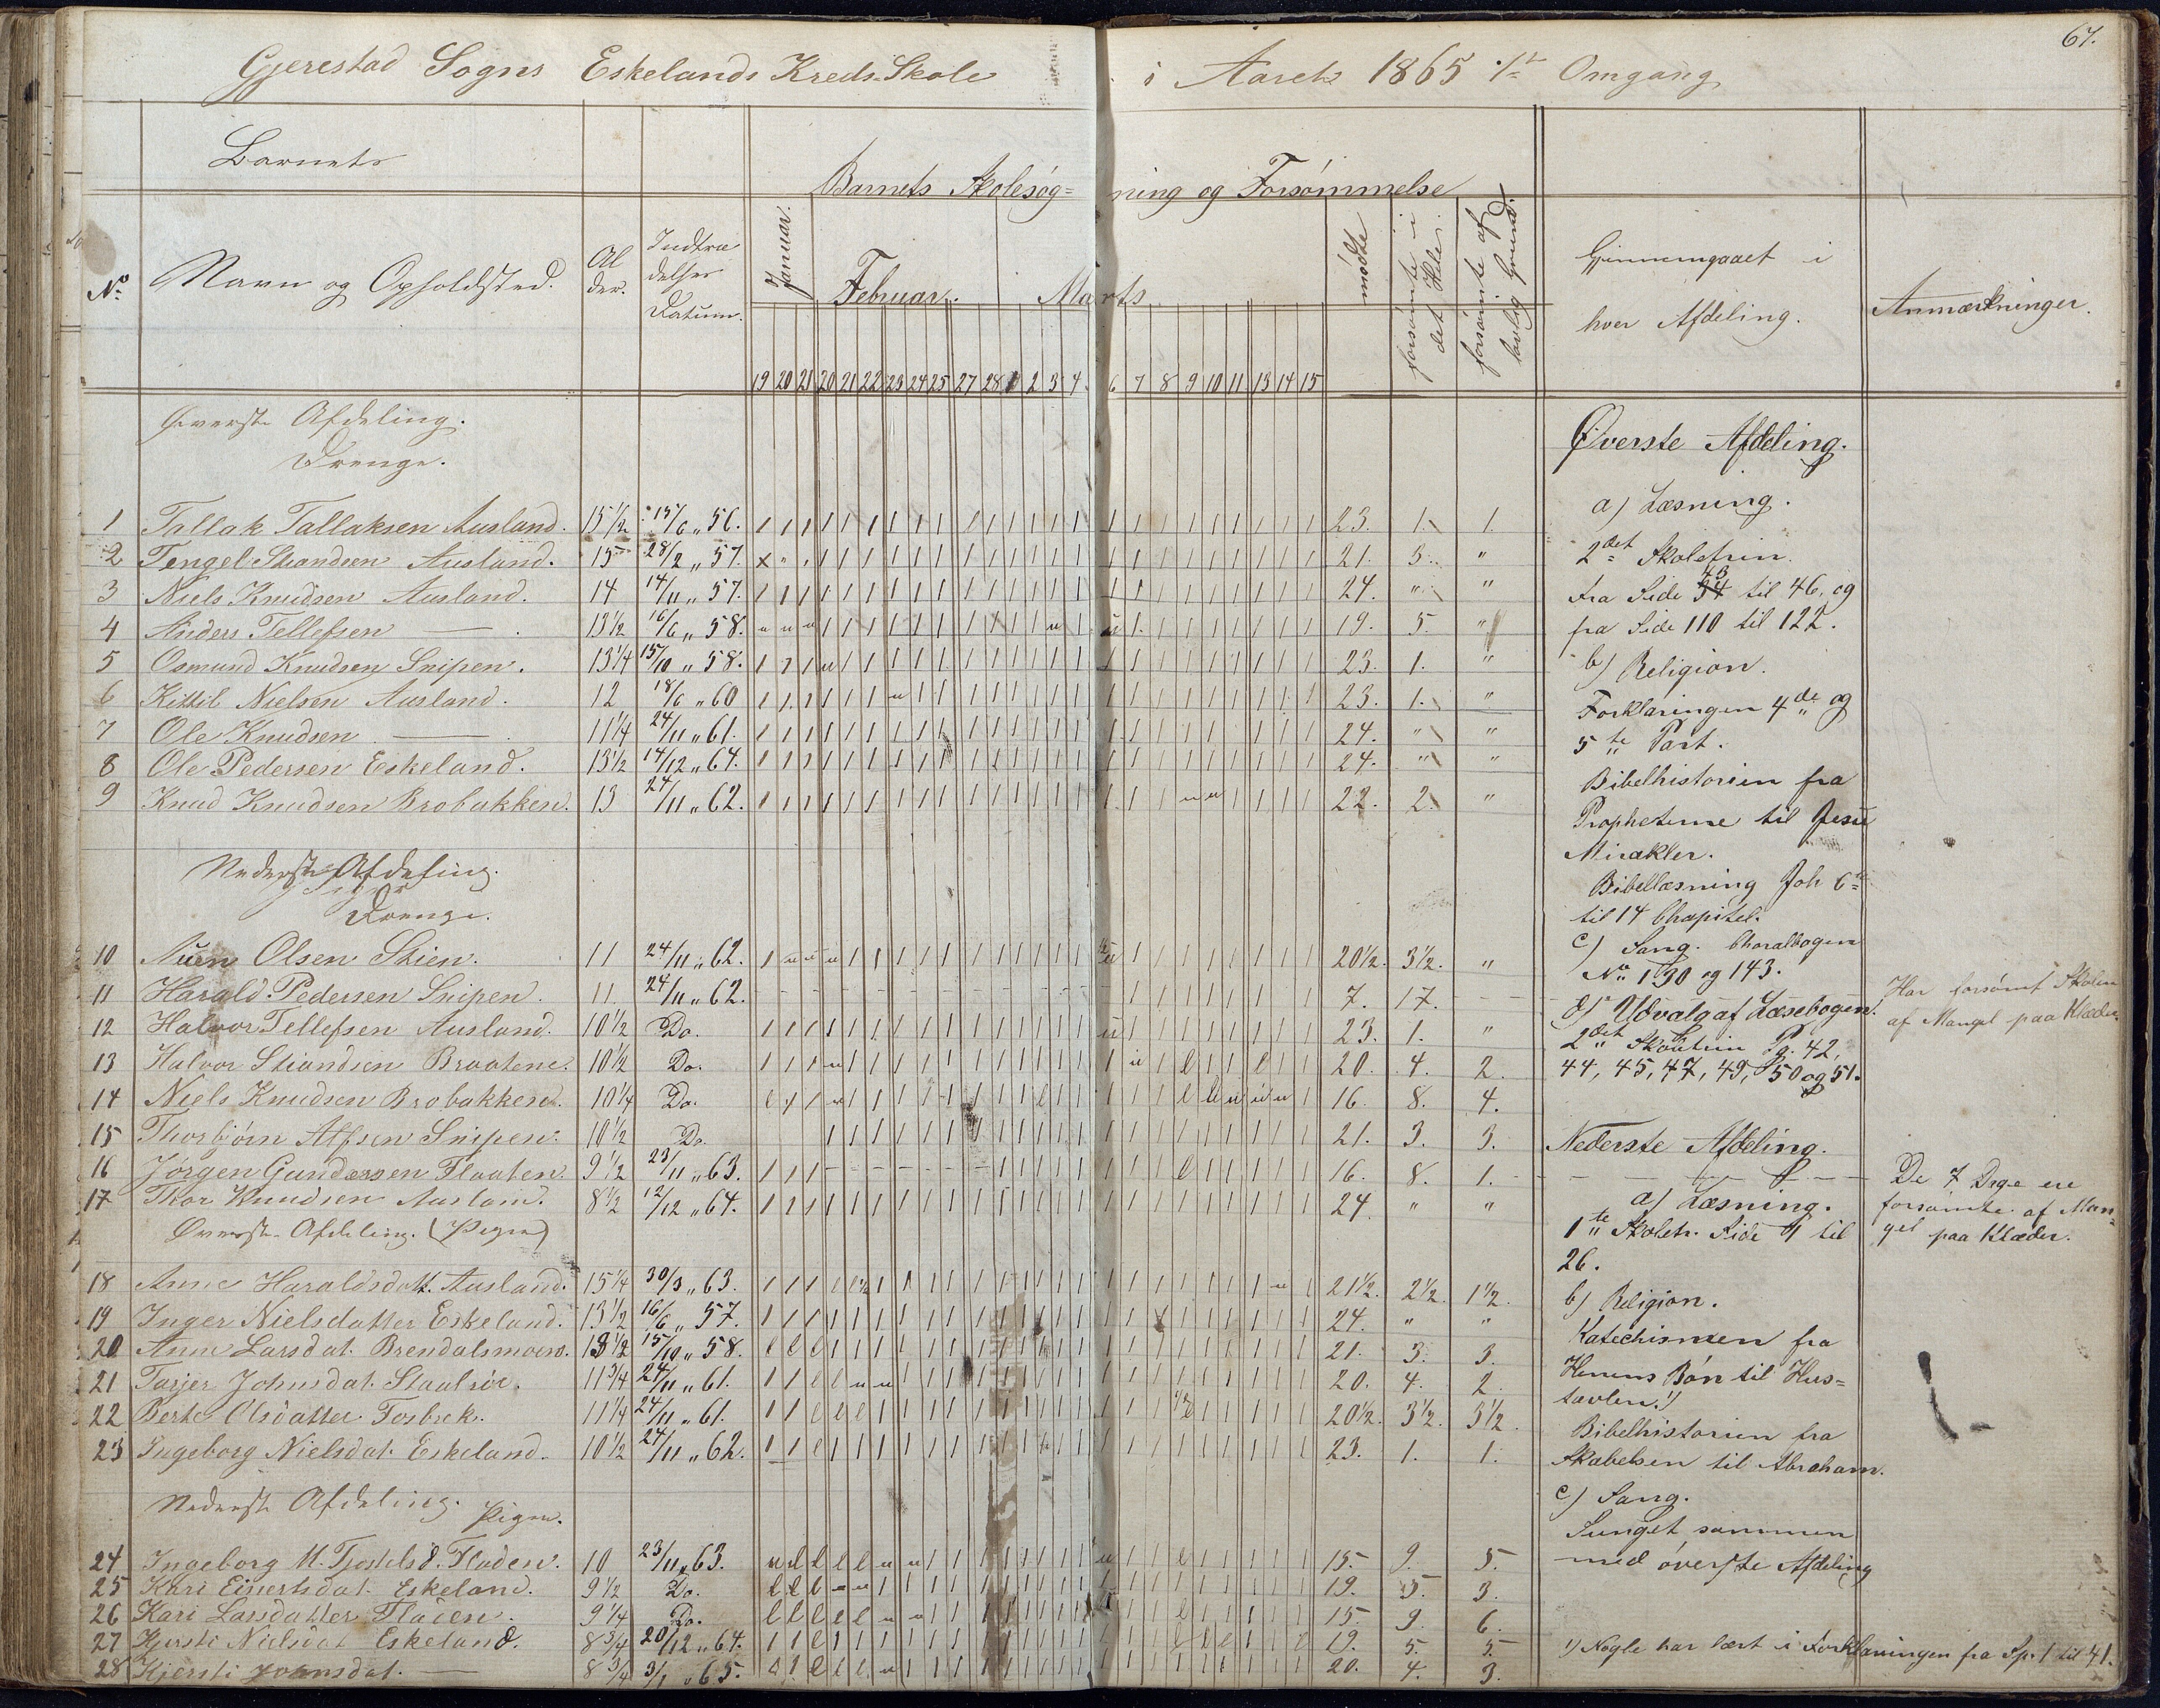 67.
Gjerestad Sogns Eskelands Kreds-Skole i Aaret 1865 1ste Omgang
Barnets
Barnets Skolesøgning og Forsømmelse
No Navn og Opholdsted. Alder. Indtrædelses Datum. Januar. Februar. Marts mødte forsømte i det Hele. forsømte af lovlig Grund. Gjennemgaaet i hver Afdeling. Anmærkninger.
19 20 21 20 21 22 23 24 25 27 28 1 2 3 4 6 7 8 9 10 11 13 14 15
Øverste Afdeling.
Drenge.
1 Tallak Tallaksen Ausland. 15 1/2 15/6 „ 56. 23. 1. 1.
2 Tengel Stiandsen Ausland. 15 28/2 „ 57. 21. 3. "
3 Niels Knudsen Ausland. 14 14/11 „ 57. 24. " "
4 Anders Tellefsen — 13 1/2 16/6 „ 58. 19. 5. "
5 Osmund Knudsen Snipen. 13 1/4 15/10 „ 58. 23. 1. "
6 Kittil Nielsen Ausland. 12 18/6 „ 60 23. 1. "
7 Ole Knudsen — 11 1/4 24/11 „ 61. 24. " "
8 Ole Pedersen Eskeland. 13 1/2 14/12 „ 64. 24. " "
9 Knud Knudsen Brobakken. 13 24/11 „ 62. 22. 2. "
Nederste Afdeling.
Drenge.
10 Olsen Skien. 11 24/11 „ 62. 20 1/2. 3 1/2. "
11 Harald Pedersen Snipen. 11. 24/11 „ 62. 7. 17.
12 Halvor Tellefsen Ausland. 10 1/2 Do. 23. 1. "
13 Halvor Stiandsen Braatene. 10 1/2 Do. 20. 4. 2.
14 Niels Knudsen Brobakken. 10 1/4 Do. 16. 8. 4.
15 Thorbjørn Alfsen Snipen. 10 1/2 Do. 21. 3. 3.
16 Jørgen Gundersen Flaaten. 9 1/2 23/11 „ 63. 16. 8. 1.
17 Thor Knudsen Ausland. 8 1/2 12/12 „ 64. 24 " "
Øverste Afdeling. (Piger)
18 Anne Haraldsdatt. Ausland. 15 1/4 30/3 „ 63. 21 1/2. 2 1/2. 1 1/2.
19 Inger Nielsdatter Eskeland. 13 1/2 16/6 „ 57. 24. " "
20 Anne Larsdat. Brendalsmoen. 13 1/2 15/10 „ 58. 21. 3. 3.
21 Tarjer Johnsdat. 11 3/4 24/11 „ 61. 20. 4. 2.
22 Berte Olsdatter Fosbek. 11 1/4 24/11 „ 61. 20 1/2. 3 1/2. 3 1/2.
23 Ingeborg Nielsdat. Eskeland. 10 1/2 24/11 „ 62. 23. 1. 1.
Nederste Afdeling. Piger.
24 Ingeborg M. Tjostelsd. Floden. 10 23/11 „ 63. 15. 9. 5.
25 Kari Eivertsdat. Eskeland. 9 1/2 Do. 19. 5. 3.
26 Kari Larsdatter Floden. 9 1/4 Do. 15. 9. 6.
27 Kjersti Nielsdat Eskeland. 8 3/4 20/12 „ 64. 19. 5. 5.
28 Kjersti Johnsdat. — 8 3/4 3/1 „ 65. 20. 4. 3.
Øverste Afdeling.
a) Læsning.
2det Skoletrin.
fra Side 34 43 til 46, og
fra Side 110 til 122.
b) Religion.
Forklaringen 4de og
5te Part.
Bibelhistorien fra
Propheterne til Jesu
Mirakler.
Bibellæsning Joh 6te
til 14 Chapitel.
c) Sang. Choralbogen
No 130 og 143.
d) Udvalg af Læsebogen.
2det Skoletrin Pg. 42,
44, 45, 47, 49, 50 og 51.
Nederste Afdeling.
a) Læsning.
1te Skoletr. Side 1 til
26.
b) Religion.
Katechismen fra
Herrens Bøn til Hus=
tavlen. 1)
Bibelhistorien fra
Skabelsen til Abraham.
c) Sang.
Sunget sammen
med øverste Afdeling
Har forsømt Skolen
af Mangel paa Klæder.
De 7 Dage ere
forsømte af Man=
gel paa Klæder.
1) Nogle har lært i Forklaringen fra Sp. 1 til 41.